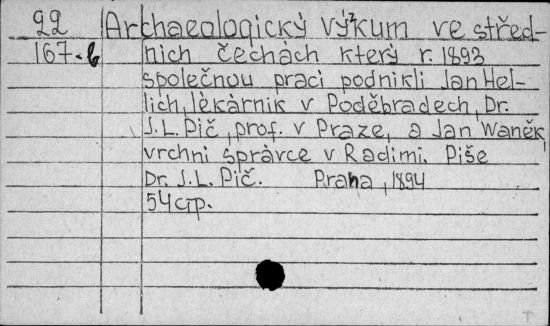 22 Archaeologický výzkum ve střed-
167.b ních čechách který r. 1893
společnou praci podnikli Jan Hel-
lich, lékárnik v Poděbradech, Dr.
J.L. Pič, prof. v Praze, a Jan Waněk,
vrchni správce v Radimi. Piše
Dr. J.L. Pič. Praha, 1894
54 стр.